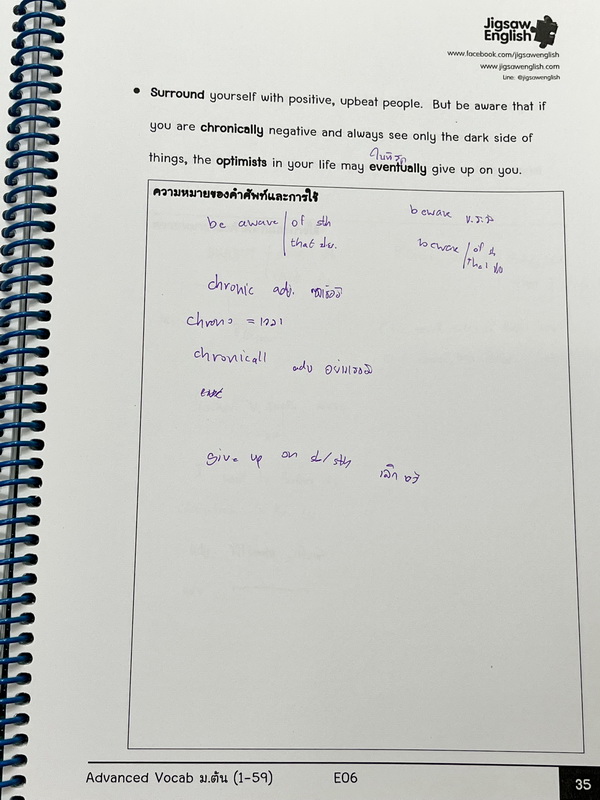 Jigsaw
English
www.facebook.com/jigsawenglish
www.jigsawenglish.com
Line: @jigsawenglish
• Surround yourself with positive, upbeat people. But be aware that if
you are chronically negative and always see only the dark side of
ในที่สุด
things, the optimists in your life may eventually give up on you.
ความหมายของคำศัพท์และการใช้
be aware / of sth
that ปย.
beware
beware / of sth
that
chronic adj. เรื้อรัง
chrono = เวลา
chronicall adv อย่างเรื้อรัง
give up on sb/sth
Advanced Vocab ม.ต้น (1-59) E06
35